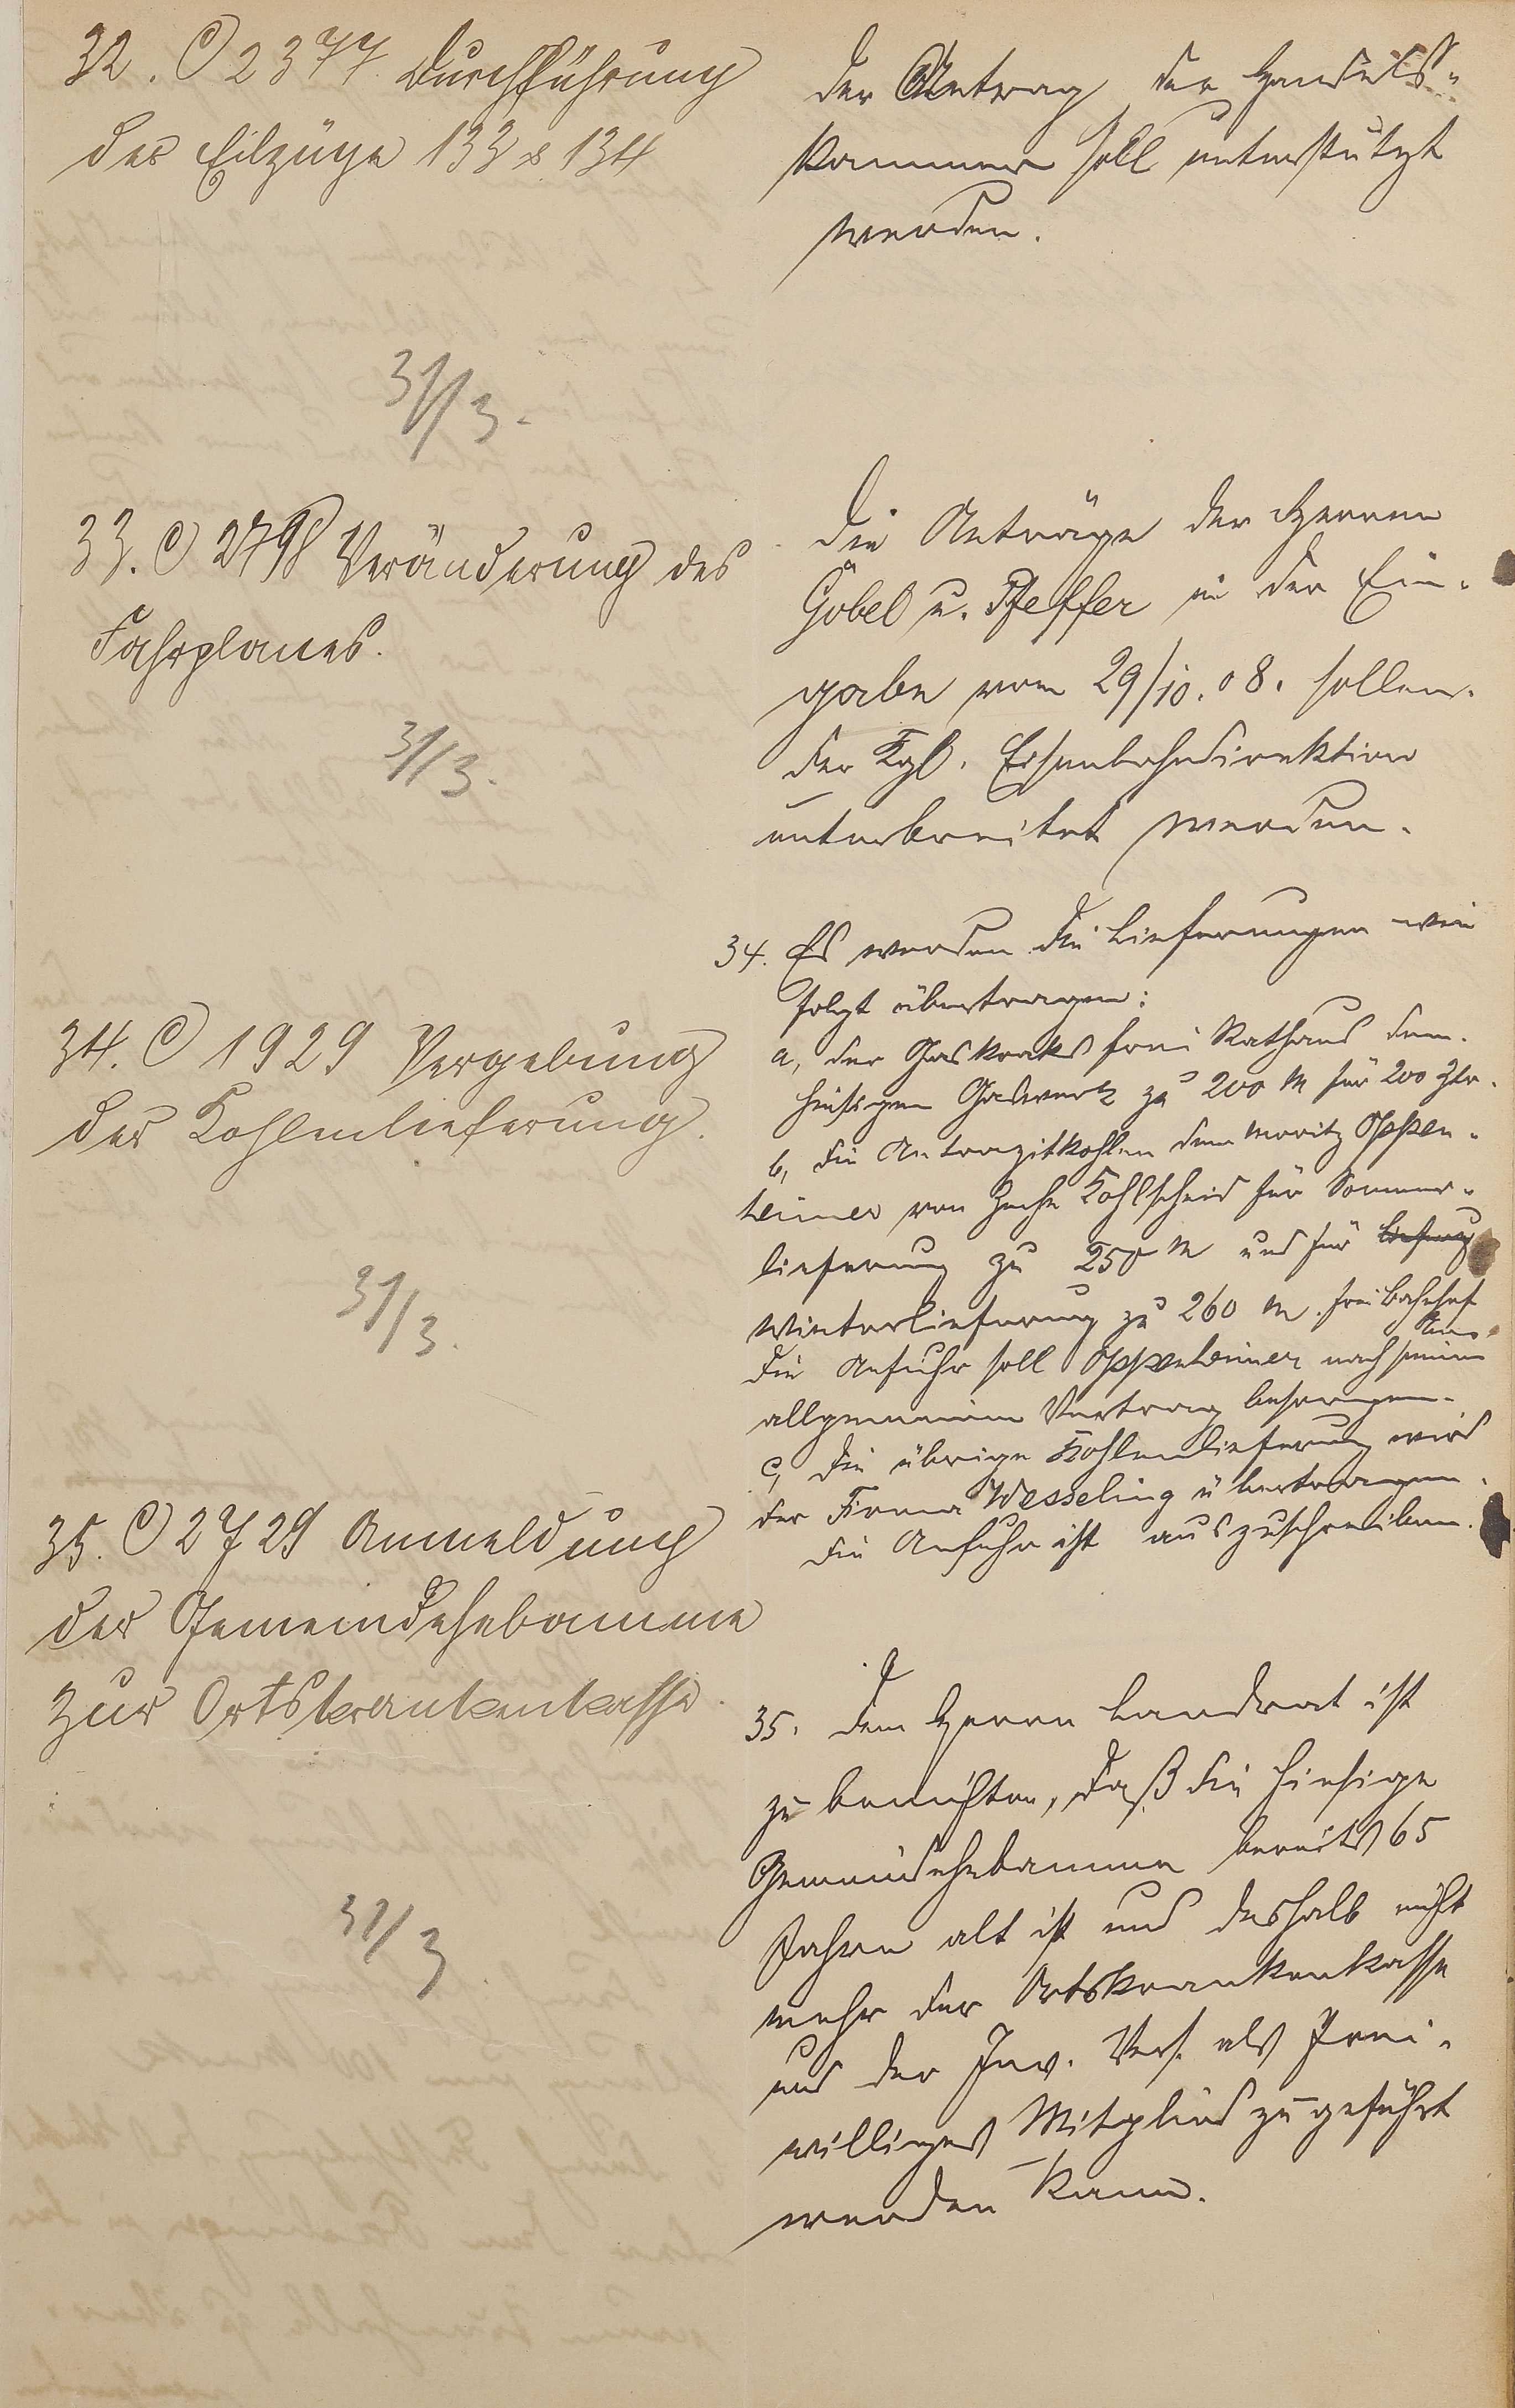 32. C 2377 Durchführung
der Eilzüge 133 & 134
Der Antrag der Handels-
kammer soll unterstützt
werden.
31/3.
33. C 2798 Veränderung des
Fahrplanes.
31/3.
Die Anträge der Herren
Göbel u. Pfeffer in der Ein-
gabe vom 29/10.08. sollen
der Kgl. Eisenbahndirektion
unterbreitet werden.
34. C 1929 Vergebung
der Kohlenlieferung.
31/3.
34. Es werden die Lieferungen wie
folgt übertragen:
a, der Gaskoaks frei Rathaus dem
hiesigen Gaswerk zu 200 M für 200 Ztr.
b, die Antrazitkohlen dem Moritz Oppen-
heimer von Zeche Kohlscheid für Sommer-
lieferung zu 250 M und für Liefrung
Winterlieferung zu 260 M. frei Bahnhof
hier
Die Anfuhr soll Oppenheimer nach seinem
allgemeinen Vertrag besorgen.
c, die übrige Kohlenlieferung wird
der Firma Wesseling übertragen.
Die Anfuhr ist auszuschreiben.
35. C 2729 Anmeldung
der Gemeindehebamme
zur Ortskrankenkasse.
31/3.
35. Dem Herrn Landrat ist
zu berichten, daß die hiesige
Gemeindehebamme bereits 65
Jahre alt ist und deshalb nicht
mehr der Ortskrankenkasse
und der Inv. Vers. als frei-
williges Mitglied zugeführt
werden kann.